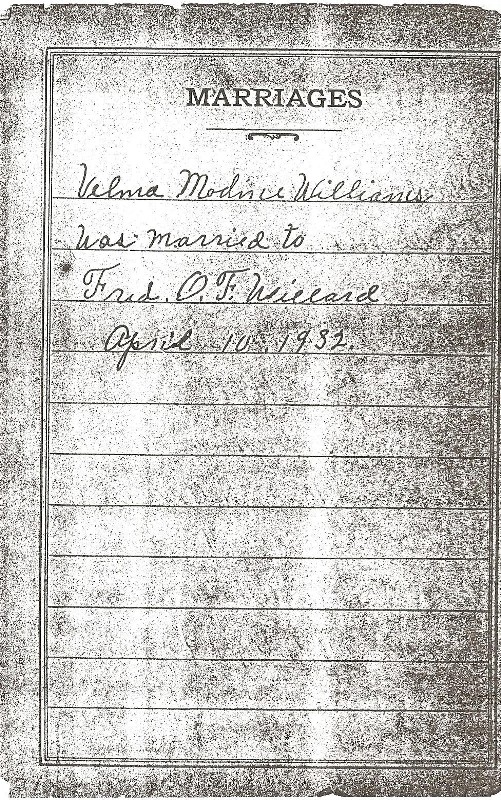 MARRIAGES
Velma Modine Williams
Was married to
Fred. O. F. Willard
April 10, 1932.